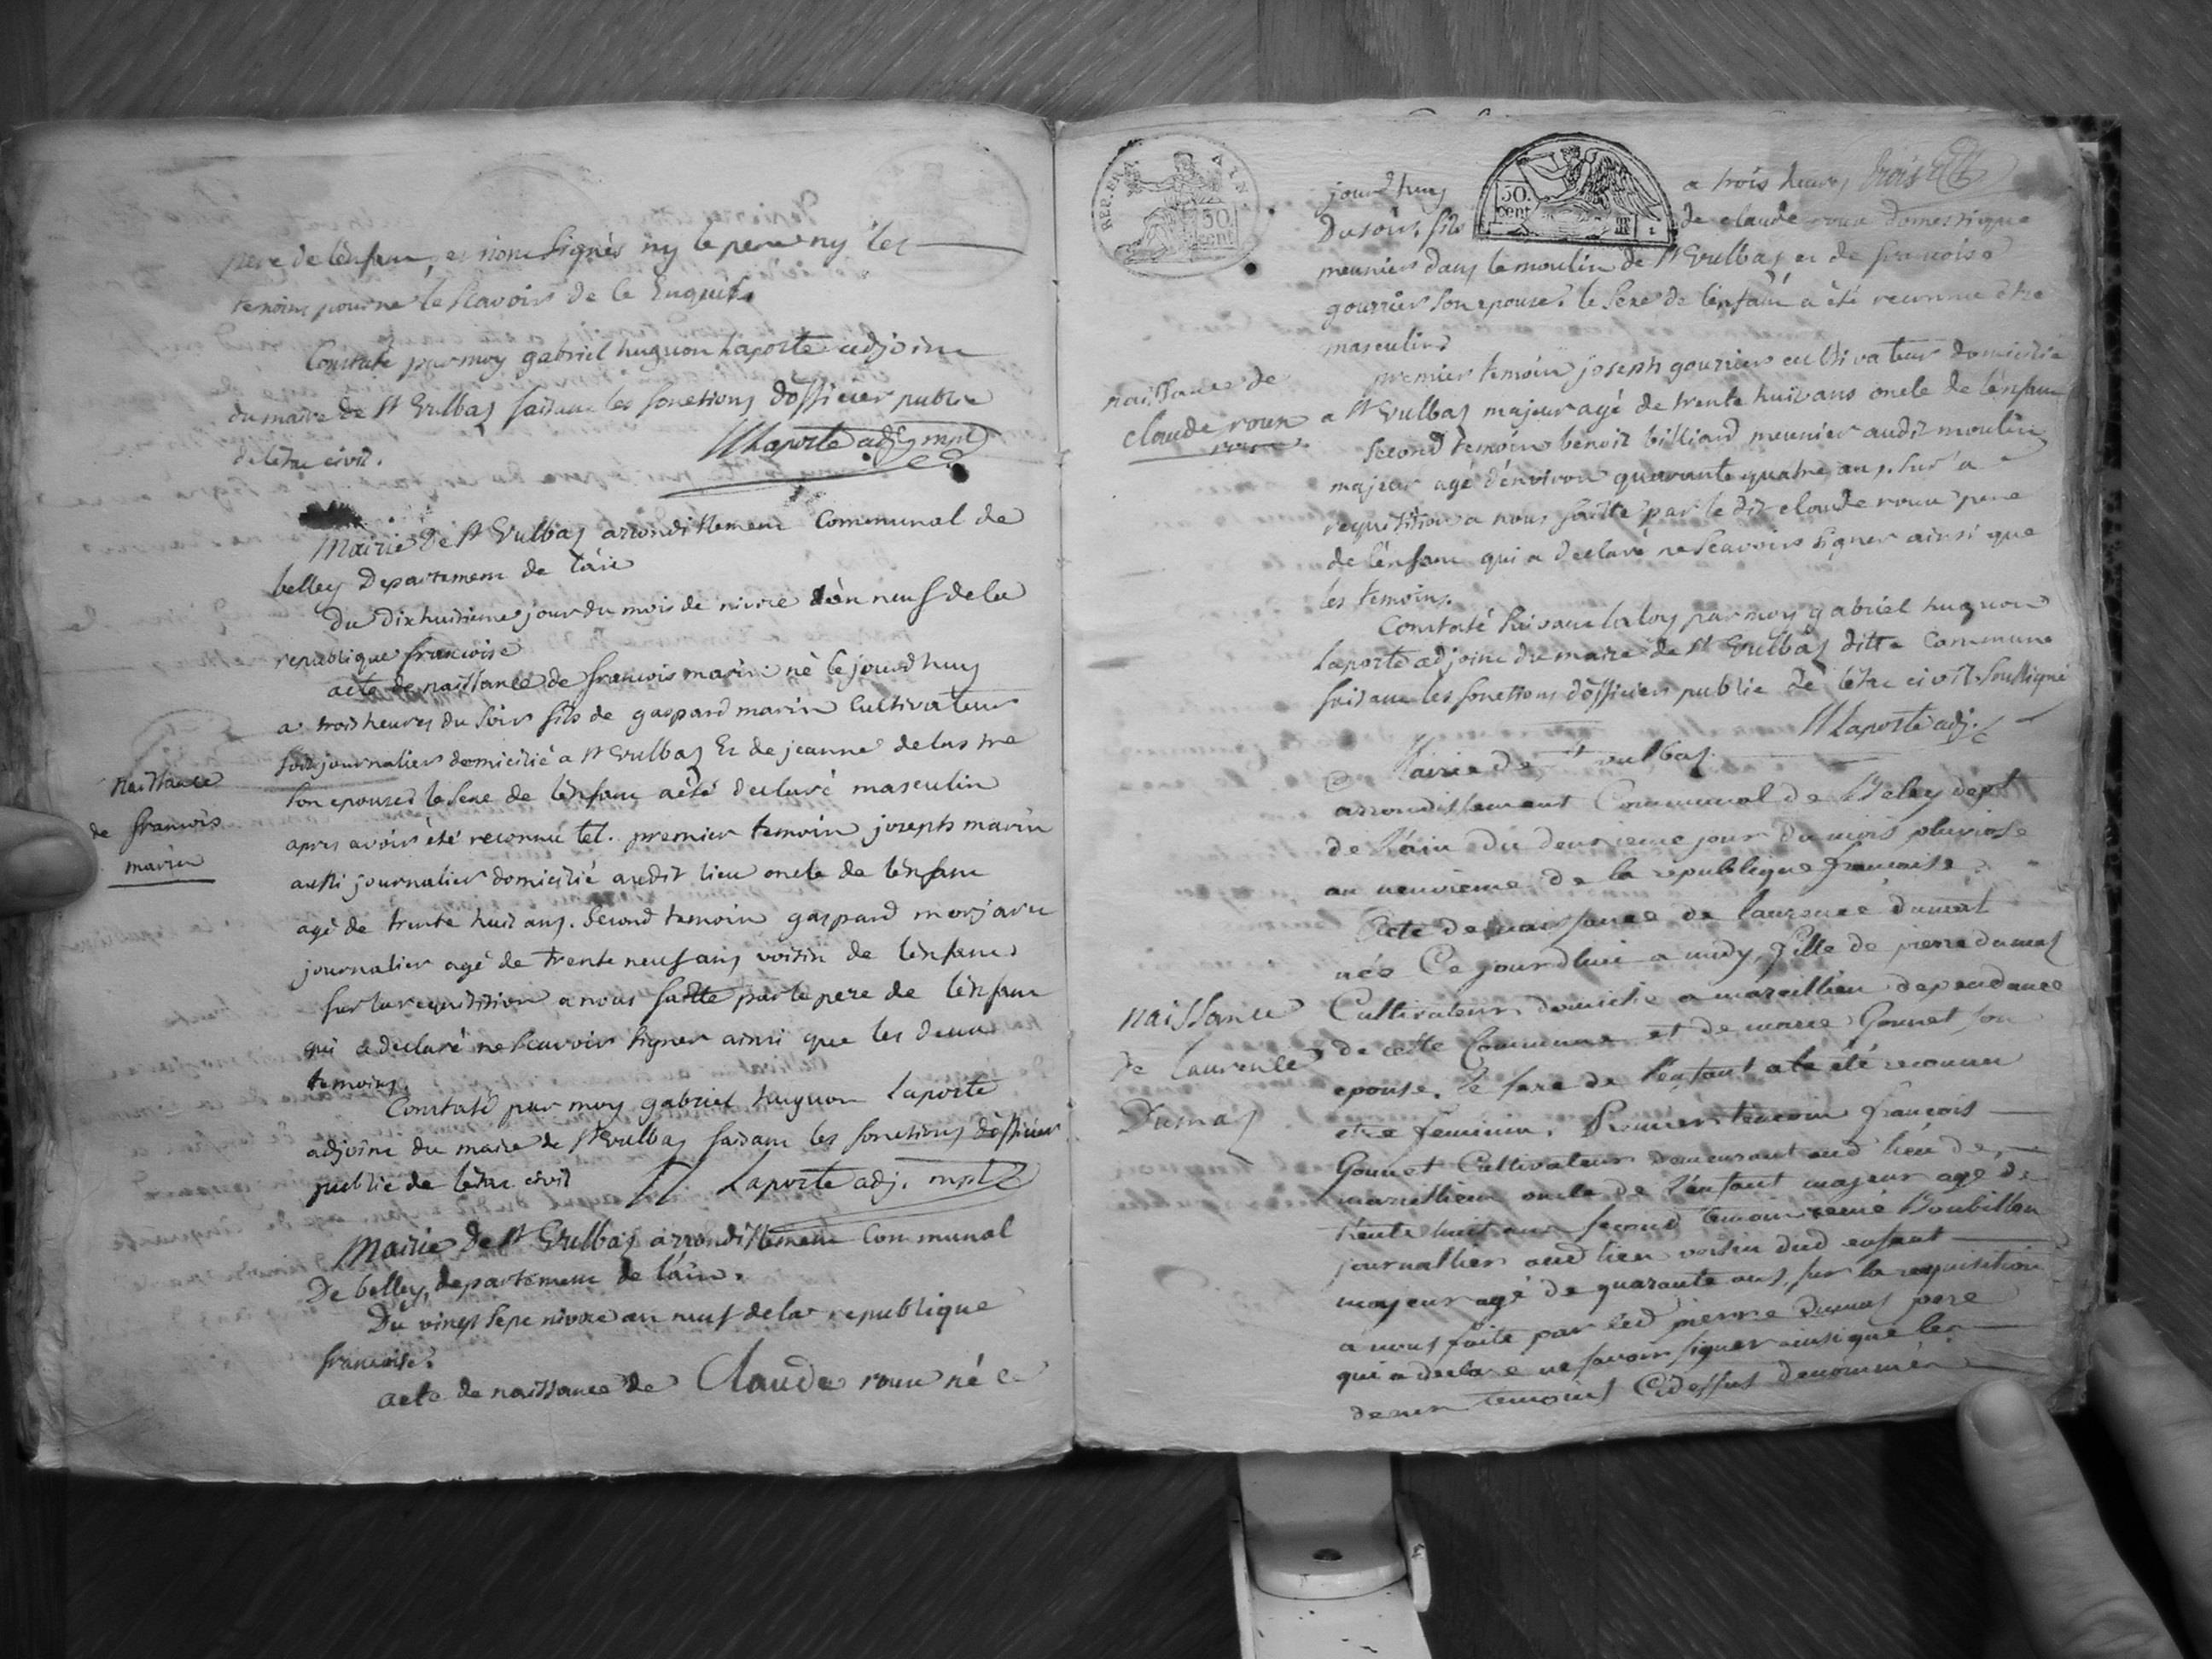 pere de lénfant, et nont signés ny le pere ny les
temoins pour ne le scavoir de ce Enquis.
Constaté par moy gabriel huguon Laporte adjoint
du maire de St Vulbas faisant les fonctions dofficier public
de létat civil.
HLaporte adj mpl
Mairie de St Vulbas arrondissement Communal de
belley Departement de l'ain
Du Dixhuitieme jour du mois de nivose de lan neuf de la
republique francoise
acte de naissance de francois marin né le jourdhuy
a trois heures du soir fils de gaspard marin Cultivateur
journalier domicilié a St Vulbas Et de jeanne delastre
son epouse, le sexe de lénfant aété declaré masculin
apres avoir été reconnu tel. premier temoin joseph marin
aussi journalier domicilié audit lieu oncle de lénfant
agé de trente huit ans. second temoin gaspard morjaru
journalier agé de trente neuf ans voisin de lénfant
naissance
de francois
marin
sur la requisition a nous faitte par le pere de lénfant
qui a declaré ne scavoir signer ainsi que les deux
temoins.
Constaté par moy gabriel huguon Laporte
adjoint du maire de St Vulbas faisant les fonctions dofficier
public de létat civil H Laporte adj. mpl
Mairie de St Vulbas arrondissement Communal
De belley, departement de láin.
Du vingt sept nivose an neuf de la republique
francoise.
acte de naissance de Claude roux né ce
REP. FRA. AIN
50 cent
50. cent
jourdhuy a trois heures trois
Du soir, fils de claude roux domestique
meunier dans le moulin de St Vulbas et de francoise
gourrier son epouse. le sexe de lénfant a été reconnu être
masculin.
naissance de
claude roux
roux
premier temoin joseph gourrier cultivateur domicilié
a St Vulbas majeur agé de trente huit ans oncle de lénfant
second temoin benoit billiard meunier audit moulin
majeur agé dénviron quarante quatre ans. sur la
requisition a nous faitte par le dit claude roux pere
de lénfant qui a declaré ne scavoir signer ainsi que
les temoins.
Constaté suivant la loy par moy gabriel huguon
Laporte adjoint du maire de St Vulbas ditte Commune
faisant les fonctions dofficier public de létat civil soussigné
HLaporte adj.
Mairie de St vulbas
arrondissement Communal de Beley dept
de l'ain du deuxieme jour du mois pluviose
an neuvieme de la republique francaise.
Acte de naissance de laurence dumat
née Ce jourdhui a midy, fille de pierre dumas
Cultivateur domicilié a marcillieu dependance
de cette Commune et de marie Gonnet son
epouse. le sexe de l'enfant a été reconnu
etre feminin. Premier temoin françois
naissance
de laurence
Dumas
Gonnet Cultivateur demeurant aud lieu de
marcillieu oncle de l'enfant majeur agé de
trente huit ans second temoin Boubillon
journallier aud lieu voisin dud enfant
majeur agé de quarante ans, sur la requisition
a nous faite par led pierre Dumas pere
qui a declaré ne savoir signer ainsi que les
deux temoins Cidessus denommés